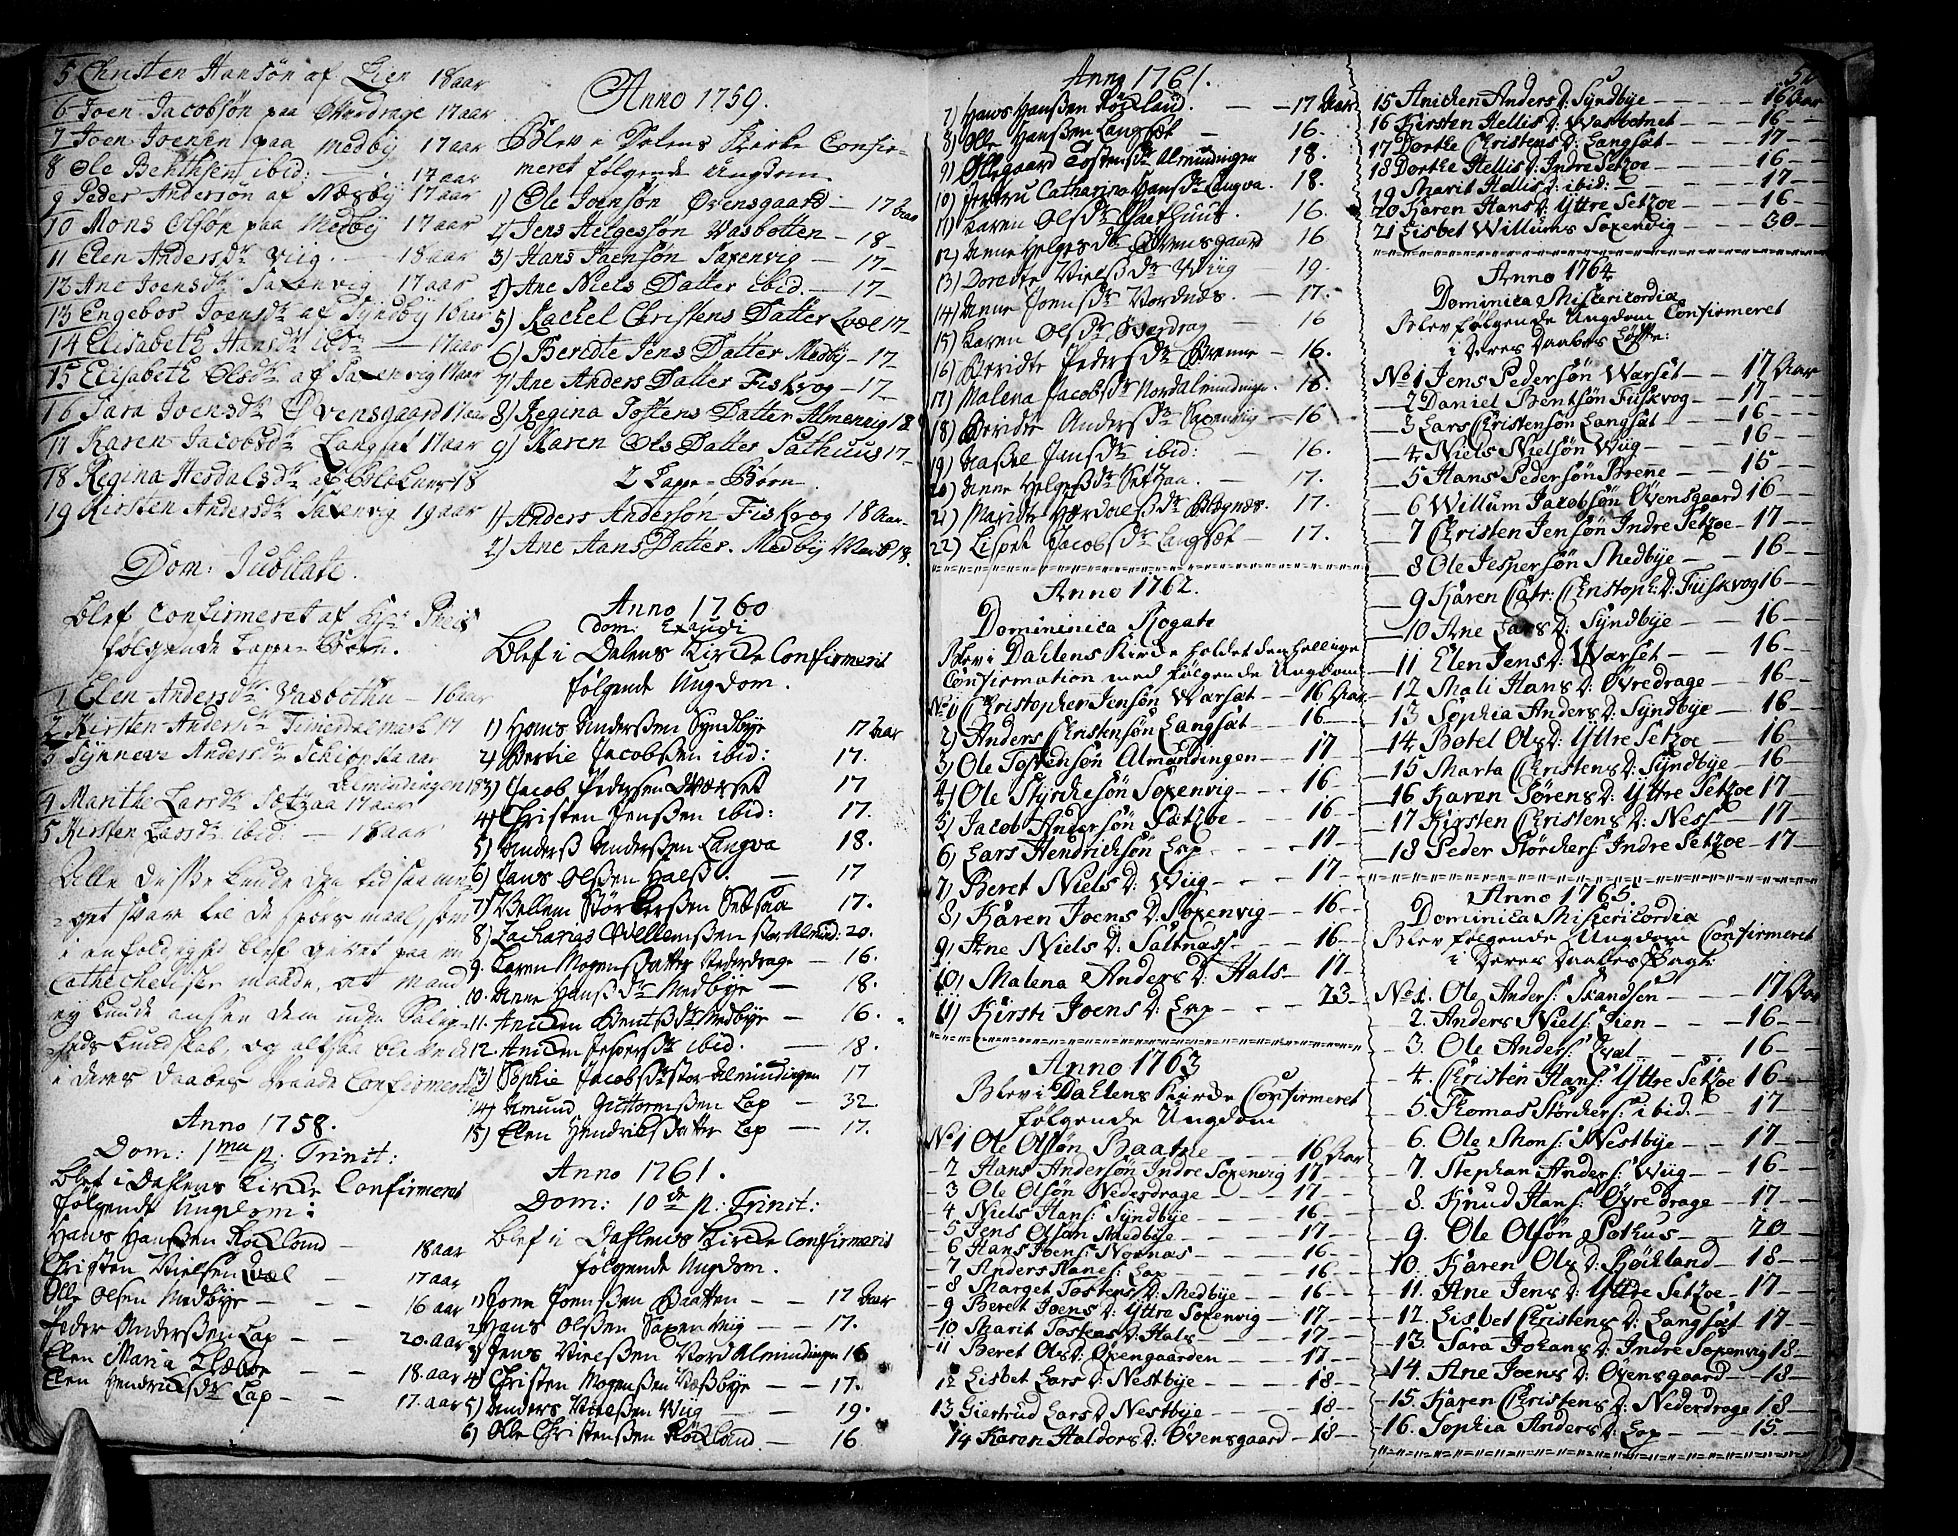 5 Christen Hansøn af Lien 18 aar
6 Joen Jacobsøn paa 17 aar
7 Joen Joensen paa Medby 17 aar
8 Ole Benthsen ibid: 17 aar
9 Peder Andersøn af Næsby 17 aar
10 Mons Olsøn paa Medby 17 aar
11 Elen Andersdr Viig 18 aar
12 Ane Joensdr Saxenvig 17 aar
13 Engebor Joensdr af Syndby 16 aar
14 Elisabeth Hansdr ibid: 17 aar
15 Elisabeth Olsdr af Saxenvig 17 aar
16 Sara Joensdr Øvensgaard 17 aar
17 Karen Jacobsdr Langsat 17 aar
18 Regina Hesdalsdr af 18
19 Kirsten Andersdr Saxenvig 19 aar
Dom: Jubilate.
blef confirmeret af Hr:
følgende Lappe-Børn.
1 Elen Andersdr Vasbothn - 16 aar
2 Kirsten Andersdr 17
3 Synneve Andersdr aar
Almindingen 18
4 Marithe Larsdr Sætzaa 17 aar
5 Kirsten Larsdr ibid: - 18 aar
Alle disse kunde
svare til de spørsmaal, som
i enfoldighed blef giort paa en
Cathechetiser maade, at mand
ey kunde ansee dem uden Salig-
heds kundskab, og altsaa bleve de
i deres daabes Naade Confirmeret
Anno 1758.
Dom: 1ma p: Trinit:
blef i Dahlens Kirche Confirmeret
følgende Ungdom:
Hans Hansen Røkland - 18 aar
Christen Nielsen Qvæl - 17 aar
Olle Olsen Medbye - - - 16 aar
Peder Anderssen Lap - - 20. aar
Elen Maria - 18. aar
Elen Hendrichsdr Lap - - 17. aar
Anno 1759.
Blev i Dalens Kirke Confir-
meret følgende Ungdom.
1) Ole Joensøn Øvensgaard - 17 aar
2) Jens Helgessøn Vasbotten - 18 -
3) Hans Joensøn Saxenvig - 17 -
4) Ane Niels Datter ibid. - 17 -
5) Rachel Christens Datter Qvæl 17 -
6) Beridte Jens Datter Medby - 17 -
7) Ane Anders Datter Fiskvog - 17 -
8) Regina Tostens Datter Almenvig 18
9) Karen Ols Datter Sathuus 17 -
2 Lappe-Børn
1) Anders Andersøn Fiskvog 18 Aar -
2) Ane Hans Datter. Medby 18.
Anno 1760
Dom: Exaudi
blef i Dalens Kirche Confirmerit
følgende Ungdom.
1) Hans Anderssen Syndbye 17 aar
2) Bertie Jacobssen ibid: 17.
3) Jacob Pederssen Warset 17
4) Christen Jenssen ibid: 17.
5) Anders Anderssen Langva 18.
6) Hans Olssen Halss. - 17
7) Vellem Størkerssen Setsaa 17.
8) Zacharias Wellemssen stor Almind: 20.
9. Karen Mogensdatter Nederdrage - 16.
10. Anne Hanssdr Medbye - 18.
11. Anichen Bentssdr Medbye - 16.
12. Anichen Jesperssdr ibid. - 18.
13) Sophie Jacobssdr stor Almindingen 17
14) Amund Guttormssen Lap - 32.
15) Elen Hendrichsdatter Lap - 17.
Anno 1761.
Dom: 10de p: Trinit:
blef i Dahlens Kirche Confirmerit
følgende Ungdom.
1) Joen Joenssen Baatten - - 17 aar
2) Hans Olssen Saxenviig - - 17.
3) Jens Nielssen Nord Almindingen 16
4) Christen Mogenssen Næssbye - - 17.
5) Anders Nielssen Wiig - 19.
6) Olle Christenssen Røckland. - 16
Anno 1761.
7) Hans Hanssen Røkland. - - 17 aar
8) Olle Hanssen Langsæt - 16.
9) Ollegaard Tostensdr Almindingen 18.
10) Jertru Catharina Hansdr Langva. 18.
11) Karen Olsdr Sathuus. 16.
12) Anne Helgesdr Øvensgaard 16
13) Doredte Nielssdr Wiig - 19.
14) Anne Joenssdr Nordnæs. - 17.
15) Karen Olssdr Øverdrag - 16
16) Beridte Pederssdr Brenne - 16.
17) Malena Jacobsdr Nordalmindingen. 18.
18) Beridte Anderssdr Saxenvig - 16
19) Jensdr ibid: - 16.
20) Anne Helgessdr Setzaa. - 17.
21) Maridte 17.
22) Lispet Jacobsdr Langsæt - 17.
Anno 1762.
Domininica Rogate
Blev i Dahlens Kirke holdet den hellige
Confirmation med følgende Ungdom
No 1) Christopher Jensøn Warsæt - - 16 Aar
2) Anders Christensøn Langsat - 16 - -
3) Ole Tostensøn Almindingen - 17 -
4) Ole Styrchesøn Soxenvig - - - 16 - -
5) Jacob Andersøn Sætzoe - - 16 - -
6) Lars Hendrichsøn Lap - - - 17 - -
7) Beret Niels D: Wiig - - - 17 - -
8) Karen Joens D: Soxenvig - - 16 - -
9) Ane Niels D: Saltnæss - - - 16 - -
10) Malena Anders D: Hals - - 17 -
11) Kirsti Joens D: Lap - - - 23 - -
Anno 1763
Blev i Dahlens Kirche Confirmeret
følgende Ungdom
No 1 Ole Olsøn Baatne - - 16 Aar
- 2 Hans Andersøn Indre Soxenvig 17 - -
- 3 Ole Olsøn Nederdrage - - 17 - -
4 Niels Hans: Syndbye - - - 16 - -
5 Jens Olsøn Medbye - - - 17 - -
6 Hans Joens: Nornæs - - - 16 - -
- 7 Anders Lap - - - 16 - -
8 Marget Tostens D: Medbye - 16 - -
- 9 Beret Joens D: Yttre Soxenvig - 17 - -
10 Marit Tostens D: Hals - - - 17 - -
- 11 Beret Ols D: Øxengaarden - - 17 - -
12 Lisbet Lars D: Nestbye - - - 18 - -
13 Giertrud Lars D: Nestbye - - - 18 - -
14 Karen Haldors D: Øvensgaard - - 18 - -
15 Anichen Anders D: Syndbye - - - 16 Aar
16 Kirsten Hellis D: Wasbotnet - - 16 - -
17 Dorthe Christens D: Langsat - - 17 - -
18 Dorthe Hellis D: Indre Setzoe - - 16 - -
19 Marit Hellis D: ibid: - - - 17 - -
20 Karen Hans D: Yttre Setzoe - - 16 -
21 Lisbet Willums Soxenvig - - - 30 - -
Anno 1764
Dominica Misericordia
Blev følgende Ungdom Confirmeret
i Deres Daabes Løfte:
No 1 Jens Pedersøn Warset - - 17 Aar
- 2 Daniel Bentsøn Fuskvog - - 17 - -
- 3 Lars Christensøn Langsat - - 16 - -
4 Niels Nielsøn Wiig - - 16 - -
5 Hans Pedersøn Brene - - 15 - -
6 Willum Jacobsøn Øvensgaard 16 - -
7 Christen Jensøn Indre Setzoe - 17 - -
8 Ole Jespersøn Medbye - - 16 - -
9 Karen Catr: Christoph: D: Fuskvog 16 - -
10 Ane Lars D: Syndbye - - 16 - -
11 Elen Jens D: Warset - - 16 - -
12 Mali Hans D: Øvredrage - - 16 - -
13 Sophia Anders D: Syndbye - 16 - -
14 Botel Ols D: Yttre Setzoe 16 - -
15 Marta Christens D: Syndbye - 16 - -
16 Karen Sørens D: Yttre Setzoe 17 - -
17 Kirsten Christens D: Ness - - 17 - -
18 Peder Størchers: Indre Setzoe - 17 - -
Anno 1765.
Dominica Misericordia
Blev følgende Ungdom Confirmeret
i Deres Daabes Pagt:
No 1. Ole Anders: Skandsen - - - 17 Aar
2. Anders Niels: Lien - - - 16 - -
3. Ole Anders: Qvæl - - - 16 - -
4. Christen Hans: Yttre Setzoe 16 - -
5. Thomas Størchers: ibid. - - 17 - -
6. Ole Mons: Nestbye - - 17 - -
7. Stephan Anders: Wiig - - 16 - -
8. Knud Hans: Øvredrage - - 17 - -
9. Ole Olsøn Sothus - - - 20 - -
10. Karen Ols D: Røchland - 18 - -
11. Ane Jens D: Yttre Setzoe - 17 - -
12. Lisbet Christens D: Langsat 17 - -
13. Sara Johans D: Indre Soxenvig 18 -
14. Ane Joens D: Øvensgaard - - 18 - -
15. Karen Christens D: Nederdrage 18 - -
16. Sophia Anders D: Lap - - - 15 - -